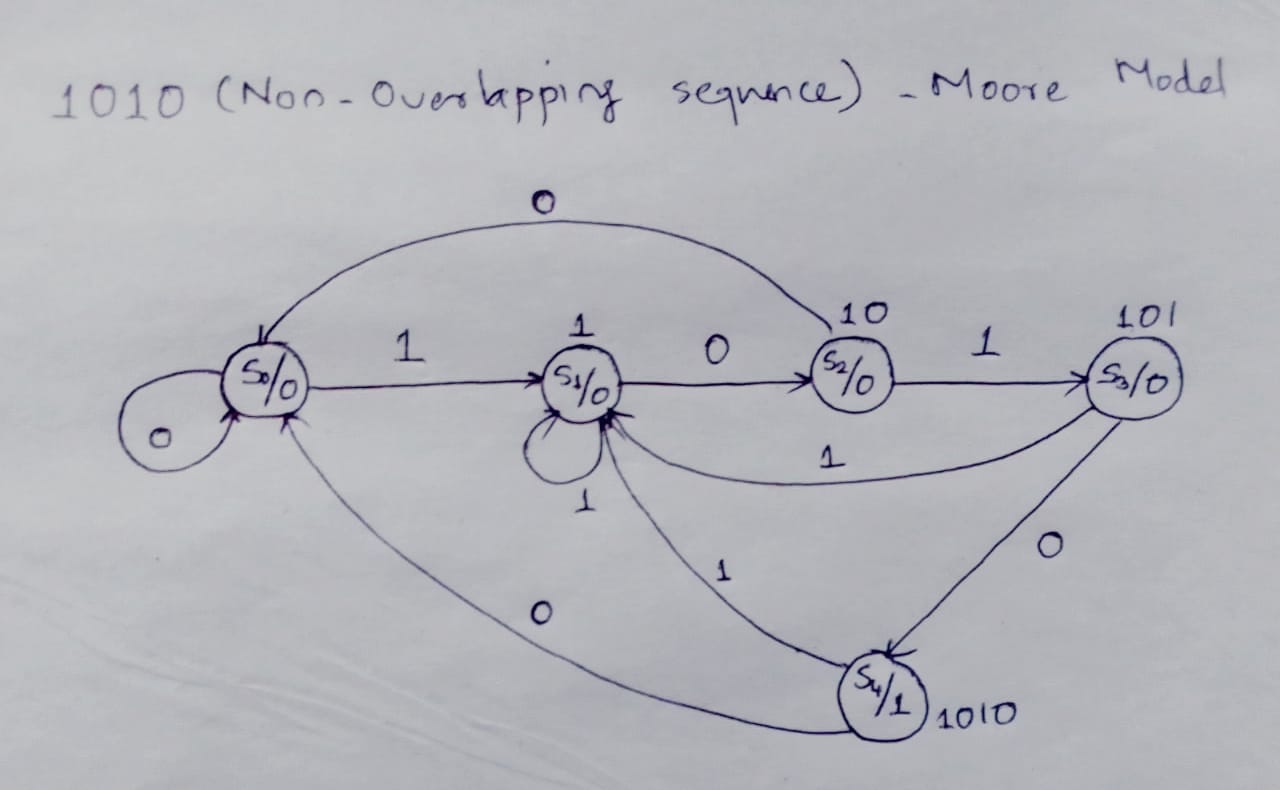 1010 (Non-Overlapping sequence) - Moore Model
0
1 10 101
1 0 1
S0/0 S1/0 S2/0 S3/0
0
1
1
0
1
0
S4/1 1010